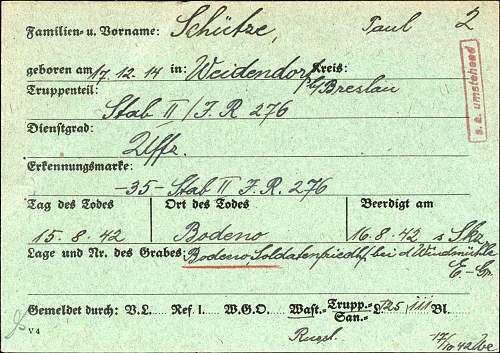 Familien- u. Vorname: Schütze, Paul 2
geboren am 17.12.14 in: Weidendorf Kreis:
Truppenteil: b/Breslau
Stab II / J.R 276
Dienstgrad:
Uffz.
Erkennungsmarke:
-35- Stab II J.R. 276
s. a. umstehend
Tag des Todes Ort des Todes Beerdigt am
15.8.42 Bodeno 16.8.42 s. Skizze
Lage und Nr. des Grabes: Bodeno Soldatenfriedhf. bei d. Windmühle
E-Gr.
Gemeldet durch: V.L. Ref I. W.G.O. Wast. Trupp.- San.- L 125 III Bl.
V 4
17/10.42